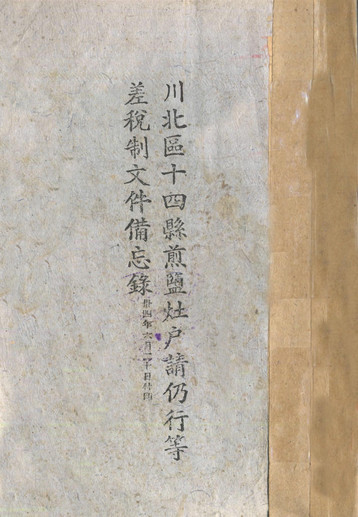 川北區十四縣煎鹽灶户請仍行等
差稅制文件備忘錄
卅四年六月二十日付印